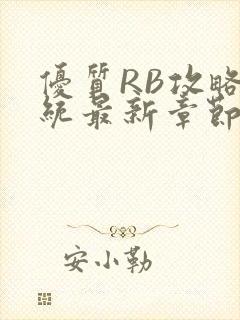 優質RB攻略
統最新章節
安小勒